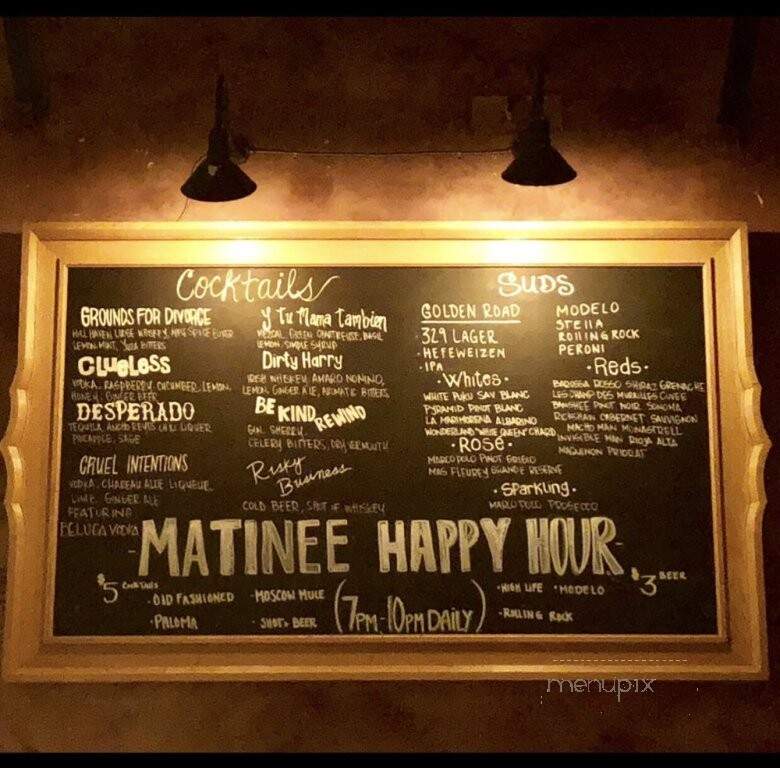 Cocktails
GROUNDS FOR DIVORCE
LEMON, MINT, YUZU BITTERS
CLUELESS
VODKA, RASPBERRY, CUCUMBER, LEMON,
HONEY, GINGER BEER
DESPERADO
TEQUILA, ANCHO REYES CHILI LIQUER
PINEAPPLE, SAGE
CRUEL INTENTIONS
VODKA, LIQUEUR,
LIME, GINGER ALE
FEATURING
BELUGA VODKA
y Tu Mama Tambien
MEZCAL, GREEN CHARTREUSE, BASIL
LEMON, SIMPLE SYRUP
Dirty Harry
IRISH WHISKEY, AMARO NONINO,
LEMON, GINGER ALE, AROMATIC BITTERS
BE KIND REWIND
GIN, SHERRY,
CELERY BITTERS, DRY VERMOUTH
Risky
Business
COLD BEER, SHOT OF WHISKEY
SUDS
GOLDEN ROAD
329 LAGER
· HEFEWEIZEN
· IPA
MODELO
STELLA
ROLLING ROCK
PERONI
· Whites ·
WHITE PUKU SAV BLANC
PYRAMID PINOT BLANC
LA MARIMORENA ALBARINO
WONDERLAND "WHITE QUEEN" CHARD
· ROSE ·
MARCO POLO PINOT GRIGIO
MAS FLEUREY GRANDE RESERVE
· Reds ·
BAROSSA ROSSO SHIRAZ GRENACHE
LES CHAMP DES MURAILLES CUVEE
BANSHEE PINOT NOIR SONOMA
CABERNET SAUVIGNON
MACHO MAN MONASTRELL
INVISIBLE MAN RIOJA ALTA
PRIORAT
· Sparkling ·
MARCO POLO PROSECCO
- MATINEE HAPPY HOUR -
$5 COCKTAILS
· OLD FASHIONED
· PALOMA
· MOSCOW MULE
· SHOT & BEER
(7PM-10PM DAILY)
· HIGH LIFE · MODELO
· ROLLING ROCK
$3 BEER
menupix